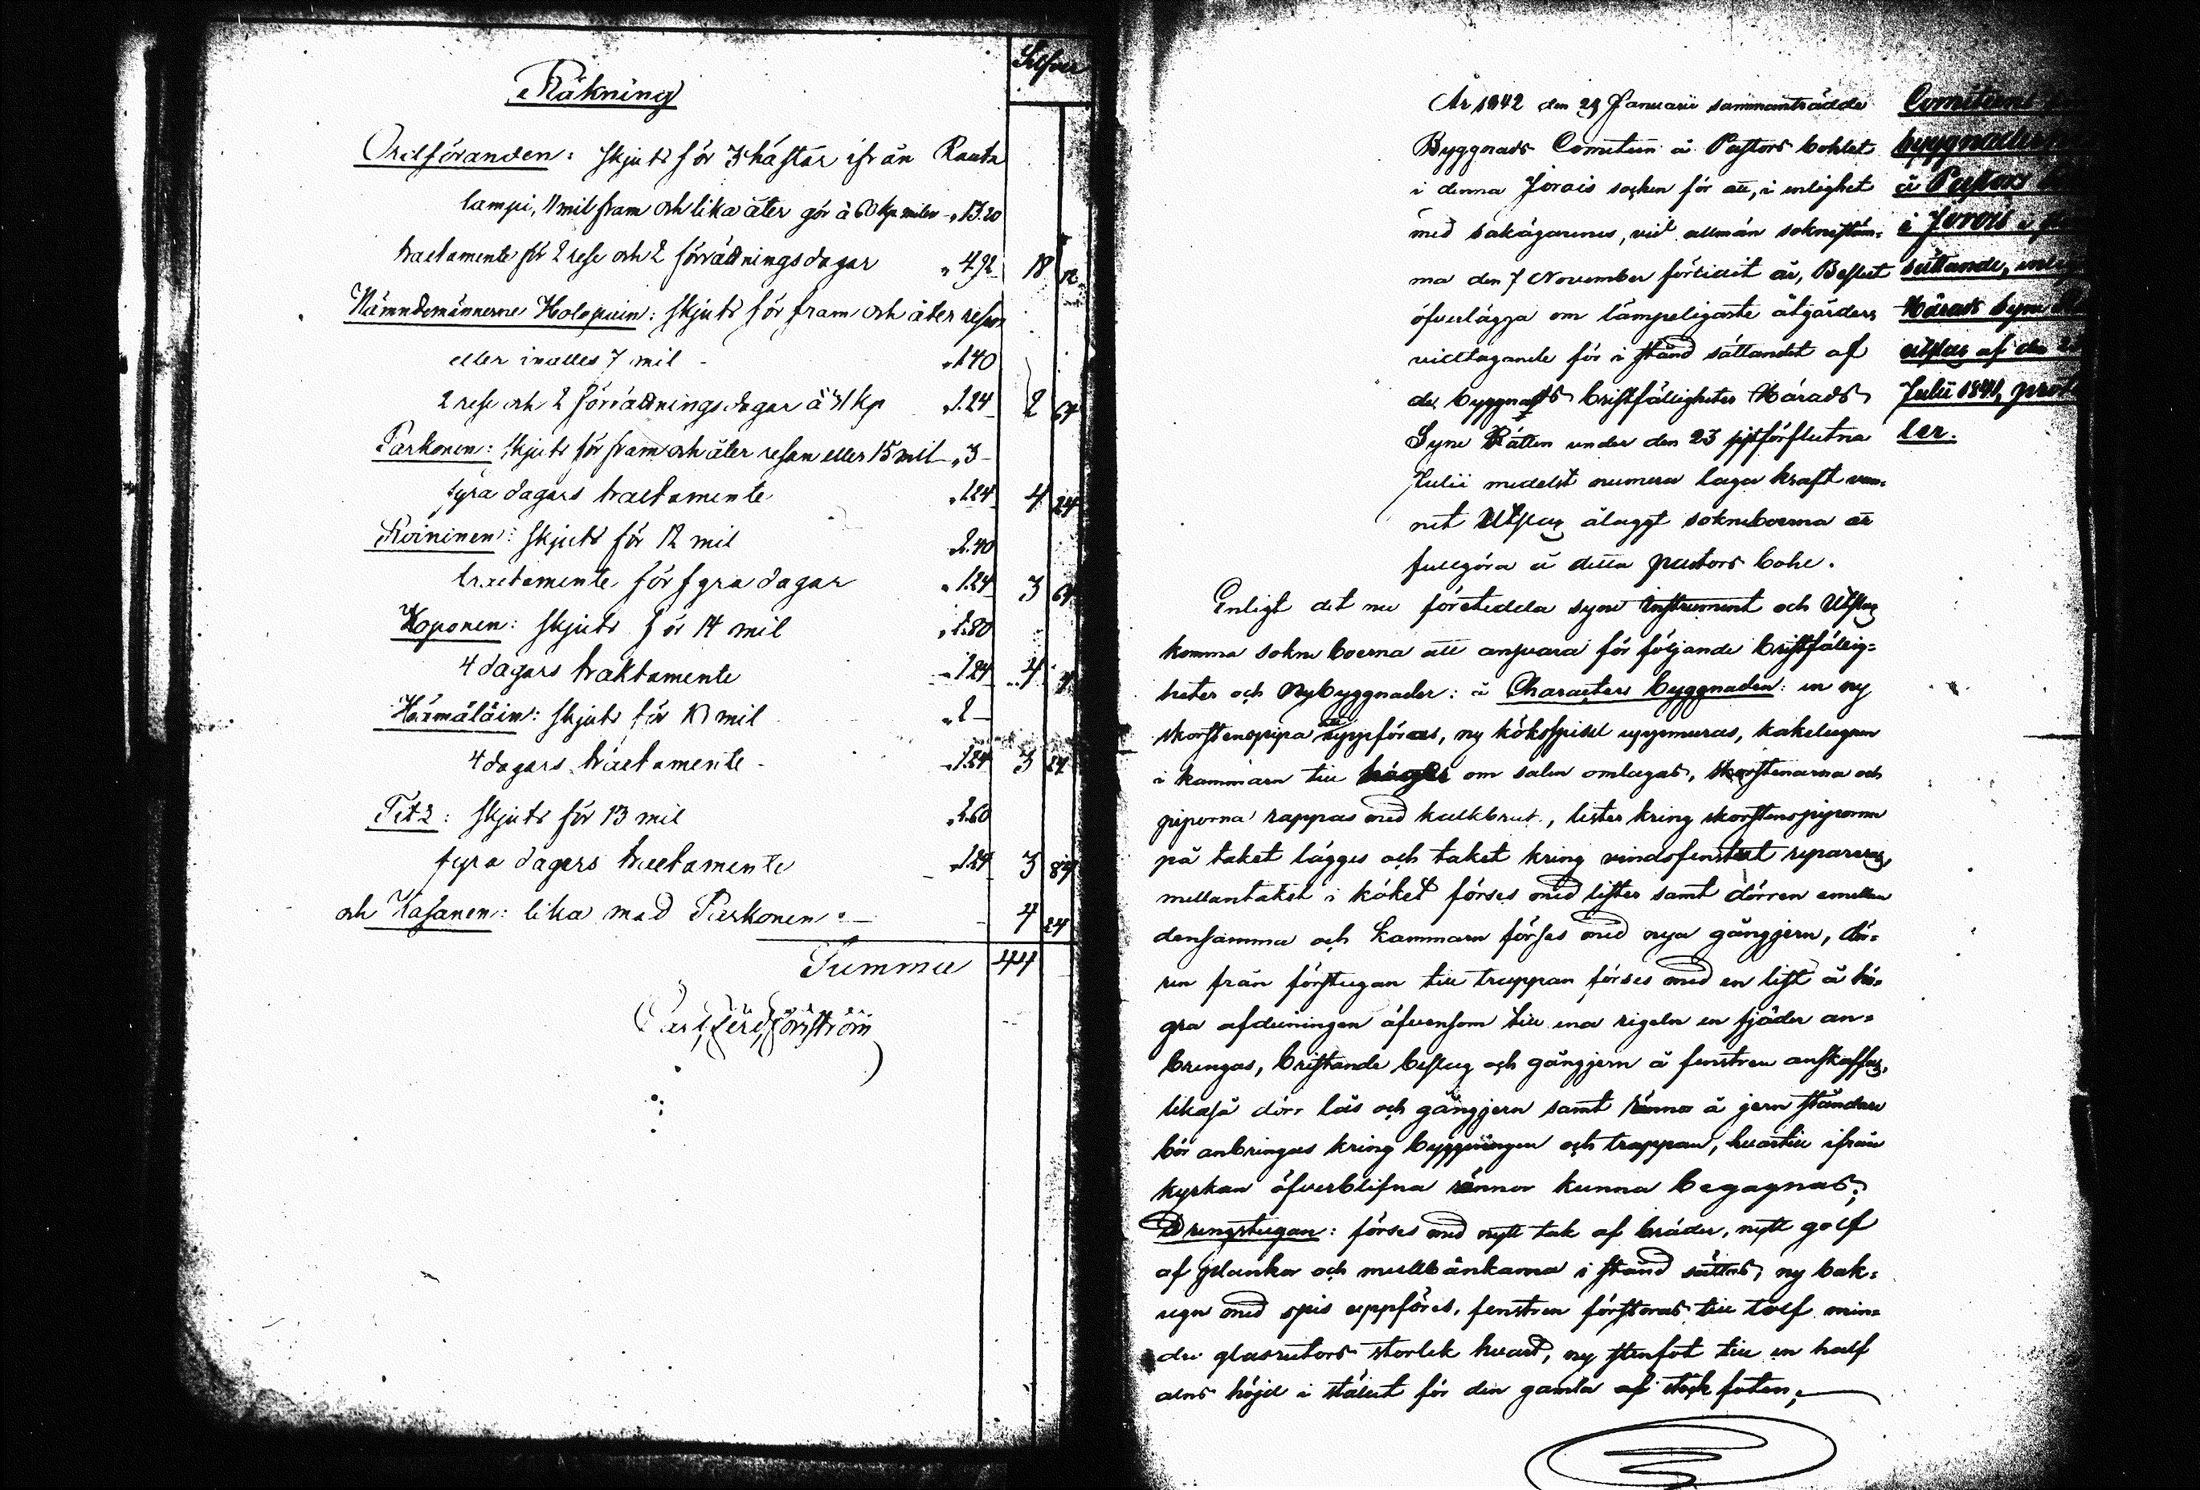 Räkning
Silfver
Ordföranden: skjuts för 3 hästar ifrån Rauta
lampi, 11 mil fram och lika åter gör à 60 kp milen „ 13.20
tractamente för 2 rese och 2 förrättningsdagar „ 4.92 18 12
Nämndemännerne Holopain: skjuts för fram och åter resan
eller inalles 7 mil „ 1.40
2 rese och 2 förrättningsdagar à 31 kp „ 1.24 2 64
Parkonen: skjuts för fram och åter resan eller 15 mil „ 3 –
fyra dagars tractamente „ 1.24 4 24
Roininen: skjuts för 12 mil „ 2.40
tractamente för fyra dagar „ 1.24 3 64
Koponen: skjuts för 14 mil „ 2.80
4 dagars traktamente „ 1.24 4 4
Hämäläin: skjuts för 10 mil „ 2 –
4 dagars tractamente „ 1.24 3 24
Titz: skjuts för 13 mil „ 2.60
fyra dagars tractamente „ 1.24 3 84
och Kasanen: lika med Parkonen 4 24
Summa 44
Carl Ferd. Forsström
År 1842 den 29 Januarii sammanträdde
Byggnads Comiteen å Pastors bohlet
i denna Jorois socken för att, i enlighet
med sakägarenes, vid allmän sokneståm-
ma den 7 November förledit år, Beslut
öfverlägga om lämpeligaste åtgärders
vidtagande för i stånd sättandet af
de byggnads bristfälligheter Härads
Syne Rätten under den 23 sistförflutna
Julii medelst numera laga kraft vun-
nit Utslag ålagt sokneboerna att
fullgöra å detta pastors bohl.
Comiteens
byggnaders
å Pastors
i Jorois
sättande, enl
Härads Syne
utslag af den
Julii 1841, prot
ler.
Enligt det nu företedda syne instrument och Utslag
komma sokne boerna att ansvara för följande bristfällig-
heter och Nybyggnader: å Characters byggnaden: en ny
skorstenspipa uppföras, ny kökspisel uppmuras, kakelugnen
i kammarn till höger om salen omlagas, skorstenarna och
piporna rappas med kalkbruk, lister kring skorstenspiporna
på taket lägges och taket kring vindsfenstret repareras,
mellantaket i köket förses med lister samt dörren emellan
densamma och kammarn förses med nya gångjern, dör-
ren från förstugan till trappan förses med en list å hö-
gra afdelningen äfvensom till ena rigeln en fjäder an-
bringas, bristande beslag och gångjern å fenstren anskaffas,
likaså dörr lås och gångjern samt rännor å jern ståndare
bör anbringas kring byggningen och trappan, hvartill ifrån
kyrkan öfverblifna rännor kunna begagnas;
Drengstugan: förses med nytt tak af bräder, nytt golf
af plankor och mullbänkarna i stånd sättas, ny bak-
ugn med spis uppföres, fenstren förstoras till tolf min-
dre glasrutors storlek hvart, ny stenfot till en half
alns höjd i stället för den gamla af stock foten;